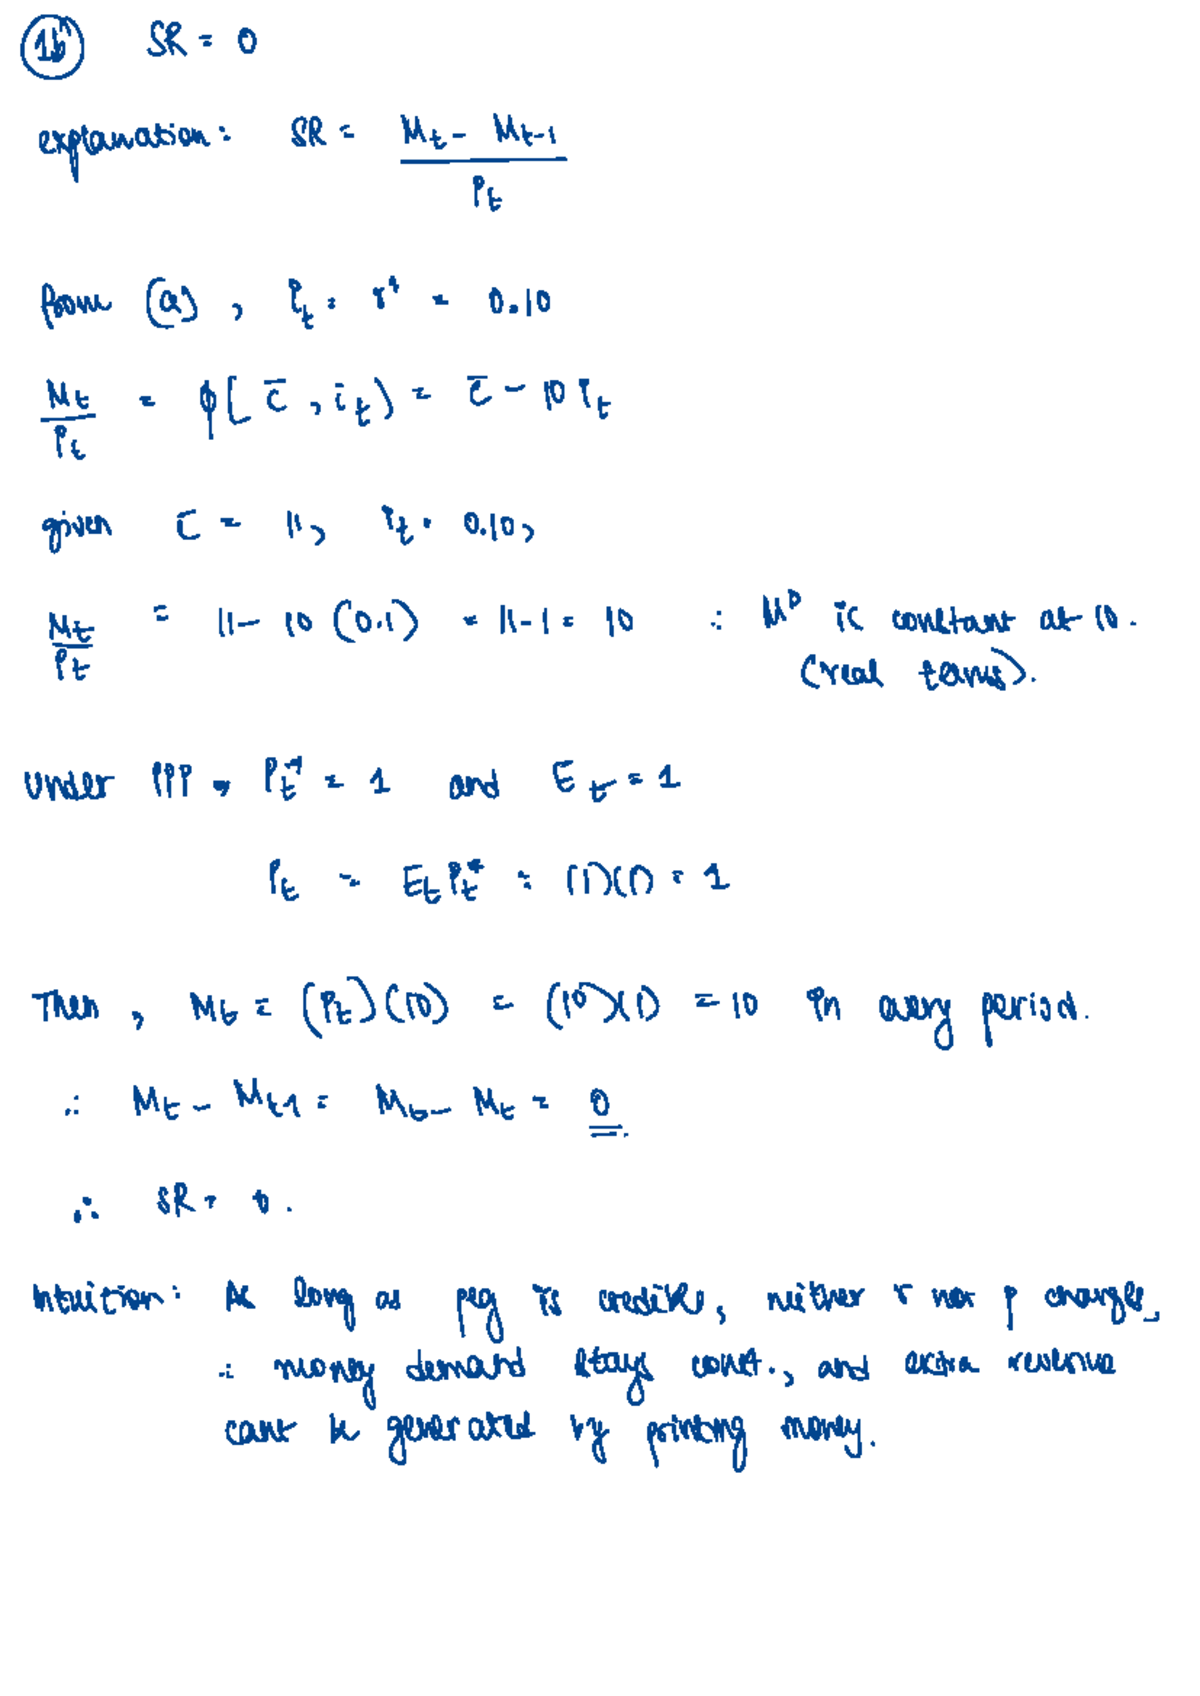 1b SR = 0
explanation: SR = (M_t - M_{t-1}) / P_t
from (a), i_t = r* = 0.10
M_t / P_t = φ(c̄, i_t) = c̄ - 10 i_t
given c̄ = 11, i_t = 0.10,
M_t / P_t = 11 - 10 (0.1) = 11 - 1 = 10 ∴ M^D is constant at 10.
(real terms).
Under PPP, P_t* = 1 and E_t = 1
P_t = E_t P_t* = (1)(1) = 1
Then, M_t = (P_t)(10) = (10)(1) = 10 in every period.
∴ M_t - M_{t-1} = M_t - M_t = 0
∴ SR = 0.
Intuition: As long as peg is credible, neither r nor p changes,
∴ money demand stays const., and extra revenue
cant be generated by printing money.